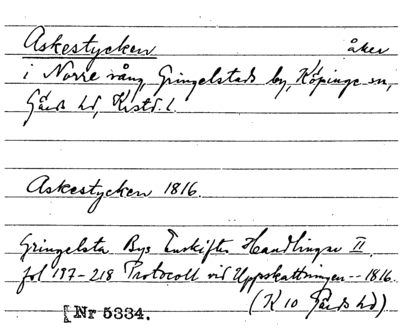 Askestycken åker
i Norre vång, Gringelstads by, Köpinge sn,
Gärds hd, Krstd. l.
Askestycken 1816.
Gringelsta Bys Enskiftes Handlingar II
fol 187-218 Protocoll vid Uppskattningen -- 1816.
(K 10 Gärds hd)
[Nr 5334.